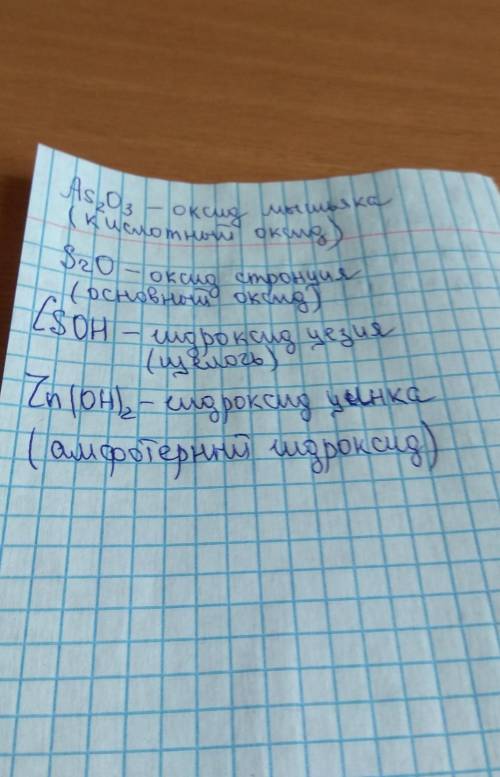 As₂O₃ – оксид мышьяка
(кислотный оксид)
SrO – оксид стронция
(основный оксид)
CsOH – гидроксид цезия
(щелочь)
Zn(OH)₂ – гидроксид цинка
(амфотерный гидроксид)